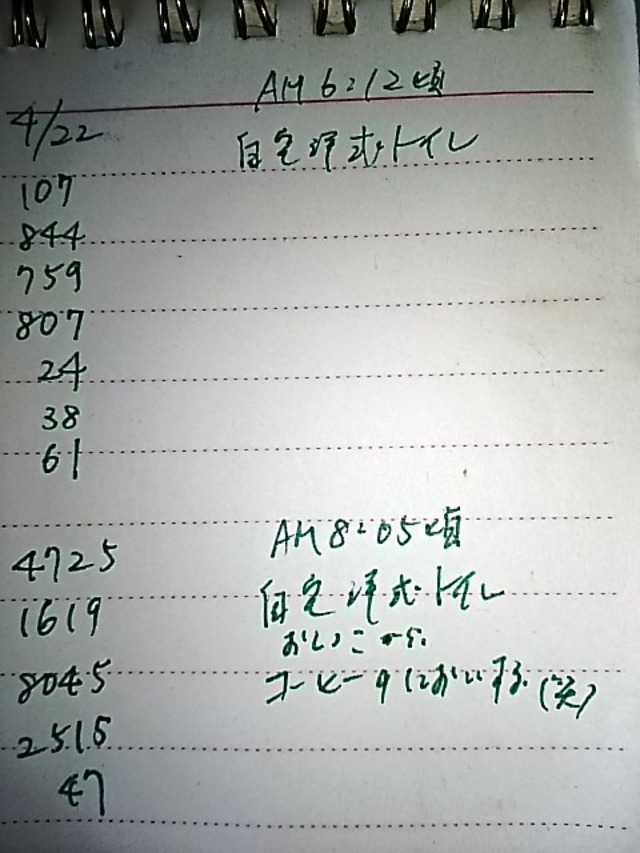 AM 6:12頃
4/22
自宅洋式トイレ
107
844
759
807
24
38
61
AM 8:05頃
4725
自宅洋式トイレ
1619
おしっこから
コーヒーのにおいする(笑)
8045
2515
47